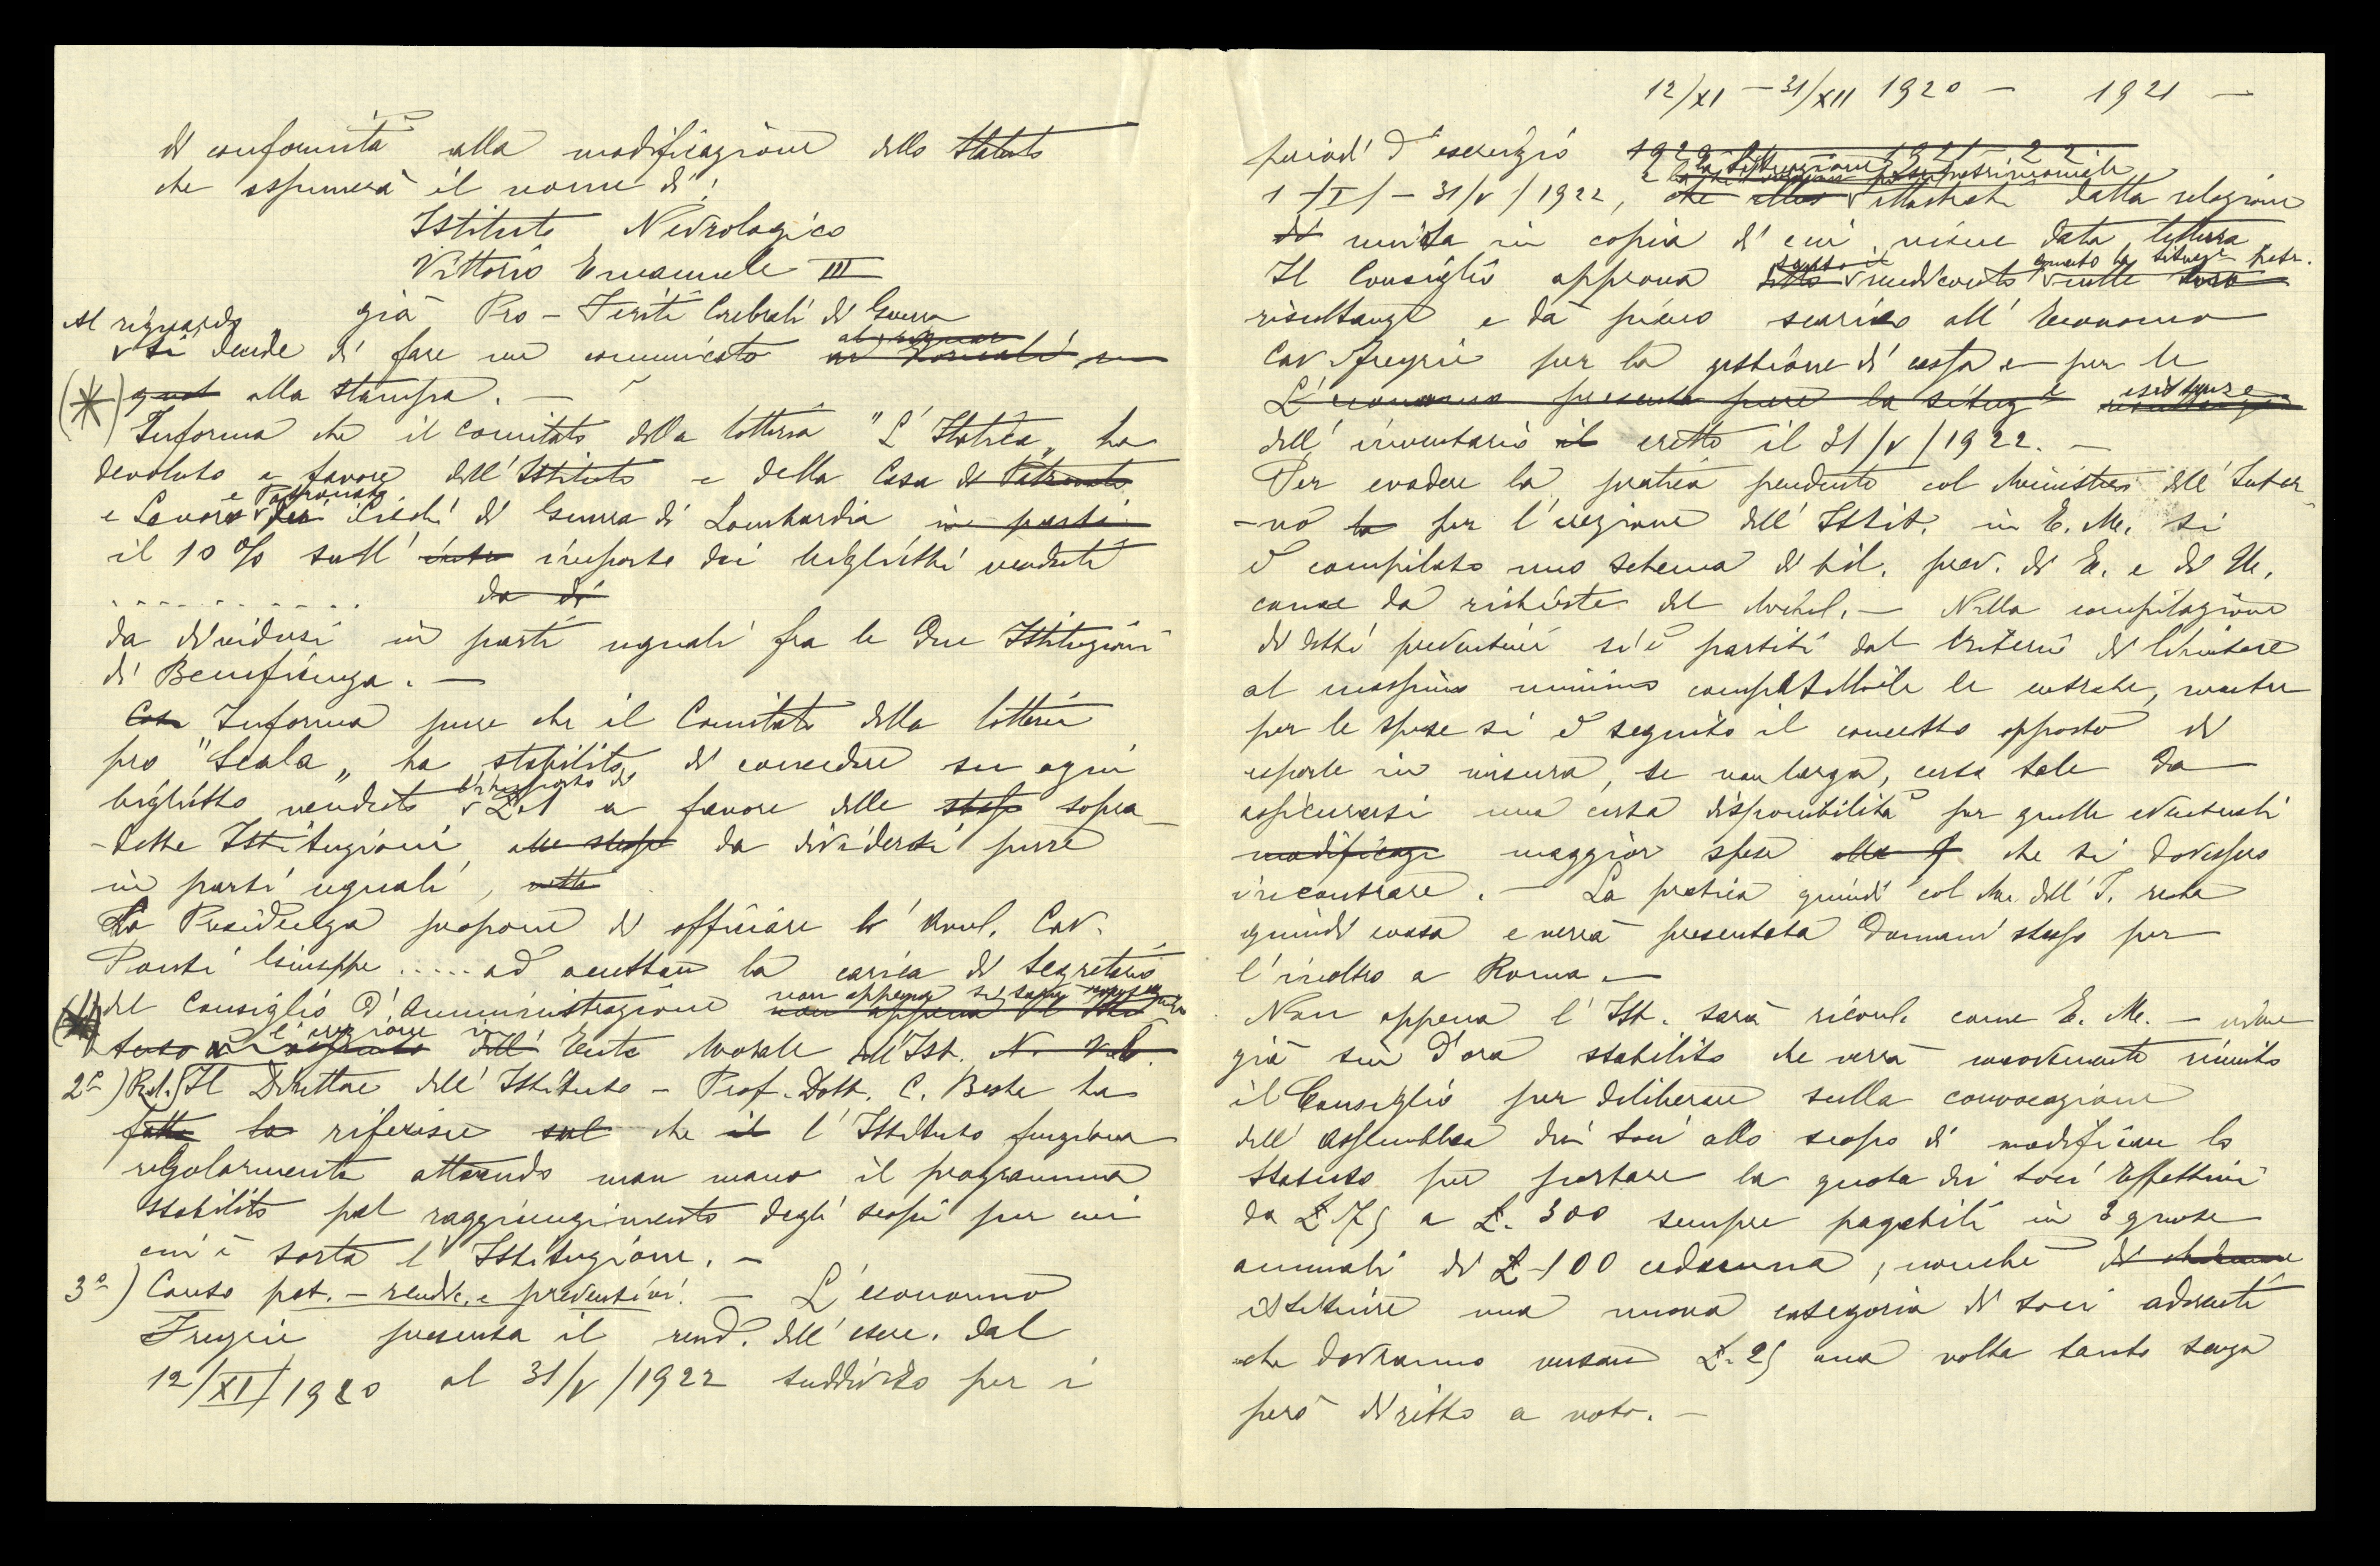 di conformità alla modificazione dello Statuto
che assumerà il nome di:
Istituto Nevrologico
Vittorio Emanuele III
già Pro-Feriti Cerebrali di Guerra
Al riguardo
si decide di fare un comunicato
alla stampa. —
(*)
Informa che il Comitato della lotteria "L'Italica„ ha
devoluto a favore dell'Istituto e della Casa di Patronato
e Patronato
e Lavoro per i Ciechi di Guerra di Lombardia in parti
il 10% sull' importo dei biglietti venduti
da di
da dividersi in parti uguali fra le due Istituzioni
di Beneficenza. —
Informa pure che il Comitato della lotteria
pro "Scala„ ha stabilito di concedere su ogni
l'importo di
biglietto venduto L. 1 a favore delle stesse sopra-
-dette Istituzioni, alle stesse da dividersi pure
in parti uguali,
La Presidenza propone di officiare il Cav.
Ponti Giuseppe ..... ad accettare la carica di Segretario
del Consiglio d'Amministrazione non appena
l'erezione in
dell' Ente Morale dell'Ist.
2°) Rel. Il Direttore dell'Istituto - Prof. Dott. C. Besta ha
fatto la riferisce sul che il l'Istituto funziona
regolarmente attuando man mano il programma
stabilito pel raggiungimento degli scopi per cui
cui è sorta l'Istituzione. —
3°) Conto pat. - rendic. e preventivi. — L'economo
Fregni presenta il rend. dell'eserc. dal
12/XI/1920 al 31/V/1922 suddiviso per i
12/XI - 31/XII 1920 — 1921 —
periodi d'esercizio 1920 21 1921-22
e la situazione patrimoniale
1/I/ - 31/V/1922, che illustrati dalla relazione
di unita in copia di cui viene data lettura
Il Consiglio approva detto rendiconto nelle loro
quanto la situaz. patr.
risultanze e dà pieno scarico all'Economo
Cav. Fregni per la gestione di cassa e per le
L'economo presenta pure la situaz.e esistenze
dell'inventario il eretto il 31/V/1922. —
Per evadere la pratica pendente col Ministero dell'Inter-
-no la per l'erezione dell'Istit. in E. M. si
è compilato uno schema di bil. prev. di E. e di U.
come da richiesta del — Nella compilazione
di detti preventivi si è partiti dal criterio di limitare
al massimo minimo compatibile le entrate, mentre
per le spese si è seguito il concetto opposto di
esporle in misura, se non larga, certo tale da
assicurarsi una certa disponibilità per quelle eventuali
modificaz. maggior spese che si dovessero
incontrare. — La pratica quindi col Mn. dell'I. resta
quindi evasa e verrà presentata domani stesso per
l'inoltro a Roma. —
Non appena l'Ist. sarà riconl. come E. M. - viene
già sin d'ora stabilito che verrà nuovamente riunito
il Consiglio per deliberare sulla convocazione
dell'Assemblea dei soci allo scopo di modificare lo
Statuto per portare la quota dei soci Effettivi
da L. 75 a L. 300 sempre pagabili in 3 quote
annuali di L. 100 cadauna, nonché
istituire una nuova categoria di soci aderenti
che dovranno versare L. 25 una volta tanto senza
però diritto a voto. —